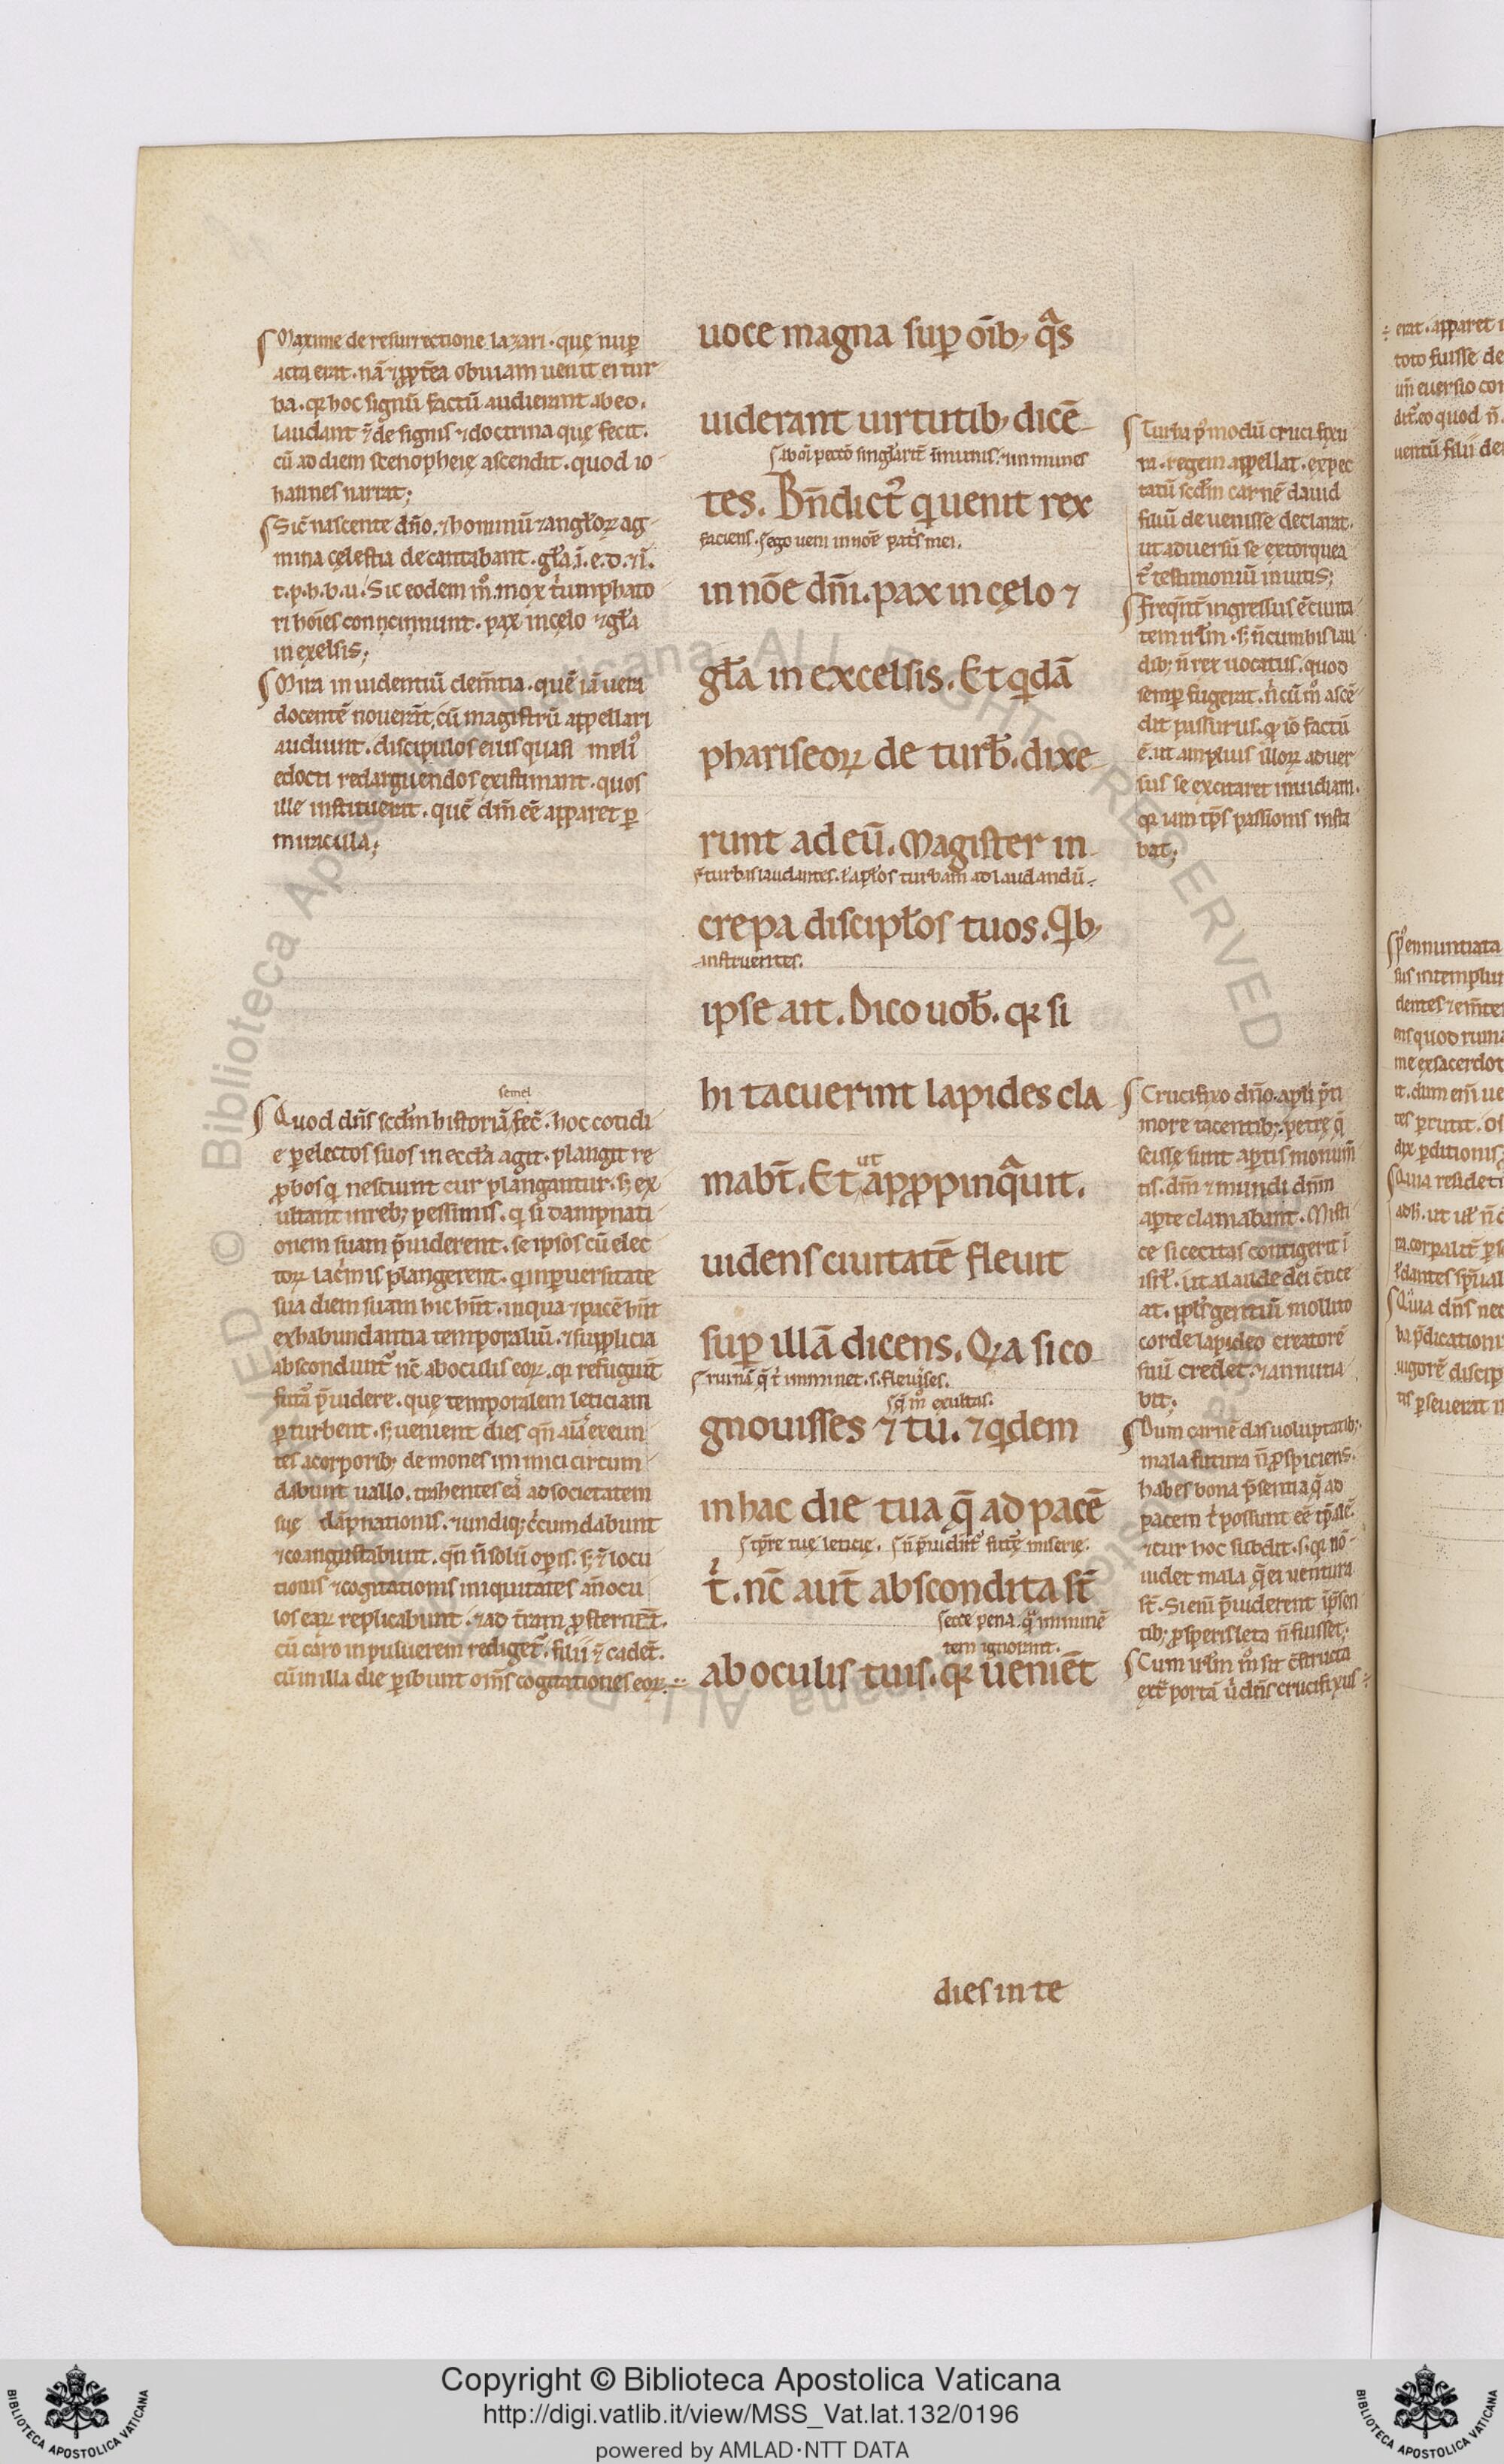 Maxime de resurrectione lazari. quę nup̄
acta erat. nā ⁊ ꝓpt̄ea obuiam uenit ei tur
ba. qꝛ hoc signū factū audierant ab eo.
laudant ⁊̄ de signis ⁊ doctrina quę fecit.
cū ad diem scenopheię ascendit. quod io
hannes narrat;
Sic̄ nascente dn̄o. ⁊ hominū ⁊ angl̄oꝝ ag
mina cęlestia decantabant. gl̄a. ī. e. d. ⁊ ī.
t. p. h. b. u. Sic eodem m̊. mox t̓umphato
ri hoīes concinunt. pax in cęlo ⁊ gl̄a
in exelsis;
Mira inuidentiū dem̄tia. quē iā uera
docentē nouerāt, cū magistrū appellari
audiunt. discipulos eius quasi meli᷒
edocti redarguendos existimant. quos
ille instituerit. quē dm̄ eē apparet ꝑ
miracula;
semel
Quod dn̄s scd̄m historiā fec̄. hoc cotidi
e ꝑ electos suos in eccl̄a agit. plangit re
ꝓbos q̓ nesciunt cur plangantur. sꝫ ex
ultant in rebꝫ pessimis. q̓ si dampnati
onem suam p̄uiderent. se ipsos cū elec
toꝝ lac̓mis plangerent. q̓ in ꝑuersitate
sua diem suam hic hn̄t. in qua ⁊ pacē hn̄t
ex habundantia temporaliū. ⁊ supplicia
absconduntᷣ nc̄ ab oculis eoꝝ. qꝛ refugiunt
futᷓa p̄uidere. quę temporalem leticiam
ꝑturbent. sꝫ uenient dies qn̄ aīab᷒ exeun
tes a corporibꝫ demones inimici circum
dabunt uallo. trahentes eā ad societatem
suę dāpnationis. ⁊ undiqꝫ c̓cumdabunt
⁊ coangustabunt. qn̄ n̄ solū oꝑis. sꝫ ⁊̄ locu
tionis ⁊ cogitationis iniquitates an̄ ocu
los eaꝝ replicabunt. ⁊ ad t̄ram ꝓsternent.
cū caro in puluerem redigetᷣ. filii ⁊̄ cadet̄.
cū in illa die ꝑibunt om̄s cogitationes eoꝝ.
uoce magna suꝑ oīb; qᷓs
uiderant uirtutib; dicē
tes. Bn̄dictꝰ q̓ uenit rex
faciens. ego ueni in noē pat̓s mei.
in nōe dn̄i. pax in cęlo ⁊
gl̄a in excelsis. Et q̓dā
phariseoꝝ de turb̄. dixe
runt ad eū. Magister in
turbas laudantes. ł apl̄os turbam ad laudandū
crepa discipl̄os tuos. Q̓b;
instruentes.
ipse ait. Dico uob̄. qꝛ si
hi tacuerint lapides cla
mabt̄. Et ut appropinqᷓuit.
uidens ciuitatē fleuit
suꝑ illā dicens. Q̓a si co
ruinā q̄ t̓ imminet. s. fleuisses.
q̄ m̊ exultas.
gnouisses ⁊ tu. ⁊ q̓dem
in hac die tua q̄ ad pacē
tꝑre tuę leticię. n̄ p̄uidentᷣ futᷓę miserię.
t̓. nc̄ aut̄ abscondita st̄
ecce pena. qᷓ imminē
tem ignorant.
ab oculis tuis. qꝛ ueniēt
Turba p̓ modū crucifixu
ra. regem appellat. expec
tatū scd̄m carnē dauid
filiū deuenisse declarat.
ut aduersū se extorquea
tᷣ testimoniū inuitis;
Freq̄nt̄ ingressus ē ciuita
tem irl̄m. sꝫ n̄ cum his lau
dibꝫ n̄ rex uocatus. quod
semꝑ fugerat. n̓ cū m̊ ascē
dit passurus. qꝛ iō factū
ē. ut amplius illoꝝ aduer
sus se excitaret inuidiam.
qꝛ iam tp̄s passionis insta
bat;
Crucifixo dn̄o. apl̄i p̄ ti
more tacentibꝫ. petrę q̄
scissę sunt aꝑtis monum̄
tis. dm̄ ⁊ mundi dn̄m
aꝑte clamabant. Misti
ce si cecitas contigerit ī
isrl̄. ut a laude dei c̄tice
at. ppl̄s gentiū mollito
corde lapideo creatorē
suū credet. ⁊ annunia
bit;
Dum carnē das uoluptatibꝫ.
mala futura n̄ ꝓspiciens.
habes bona p̄sentia q̄ ad
pacem t̓ possunt eē tp̄alē.
⁊ cur hoc subdit. s. qꝛ nō
uidet mala q̄ ei uentura
st̄. Si eni p̄uiderent ī p̄sen
tibꝫ ꝓsperis lęta n̄ fuisset;
Cum irl̄m m̊ sit c̄structa
ext̄ portā ū dn̄s crucifixus
dies in te
erat. apparet
toto fuisse de
ueniū filii de
sus in templu
Copyright © Biblioteca Apostolica Vaticana
http://digi.vatlib.it/view/MSS_Vat.lat.132/0196
powered by AMLAD·NTT DATA